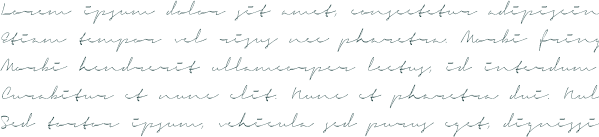 Lorem ipsum dolor sit amet, consectetur adipiscin
Etiam tempor vel risus nec pharetra. Morbi fring
Morbi hendrerit ullamcorper lectus, id interdum
Curabitur et nunc elit. Nunc et pharetra dui. Nul
Sed tortor ipsum, vehicula sed purus eget, digniss